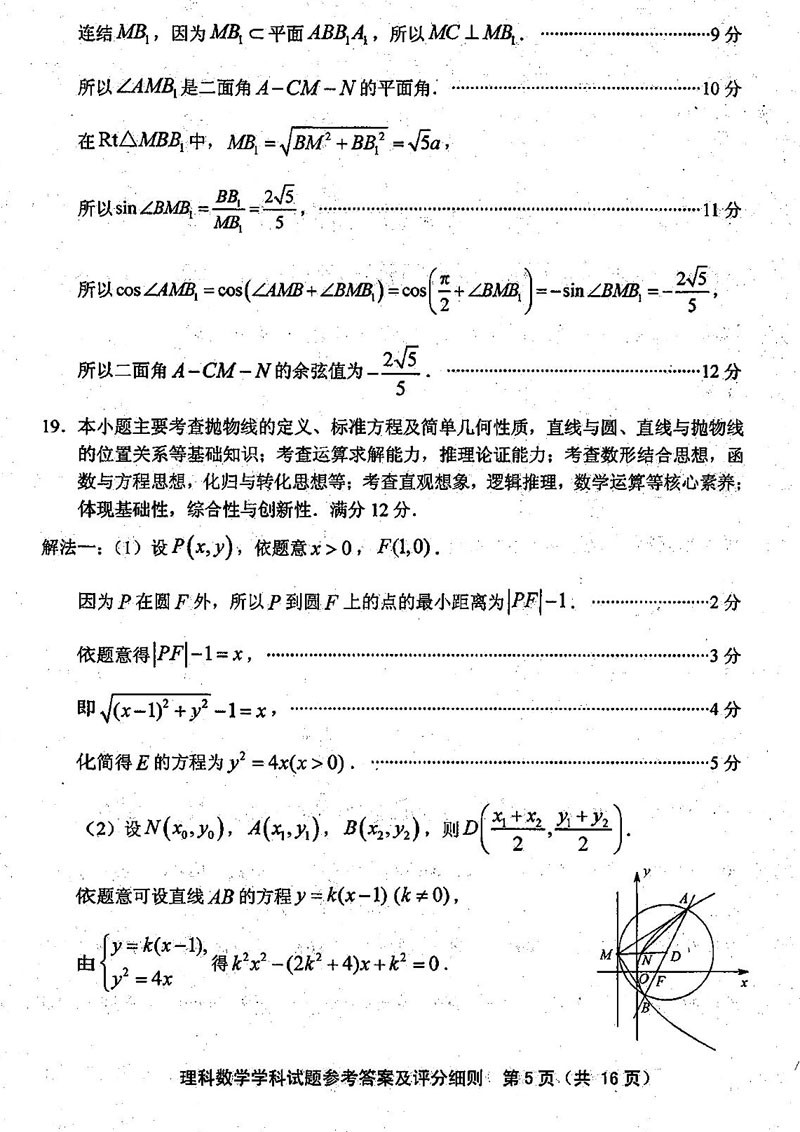 连结 MB₁，因为 MB₁ ⊂ 平面 ABB₁A₁，所以 MC ⊥ MB₁． ……………………………9 分
所以 ∠AMB₁ 是二面角 A－CM－N 的平面角． ……………………………………10 分
在 Rt△MBB₁ 中，MB₁ = √(BM² + BB₁²) = √5a，
所以 sin∠BMB₁ = BB₁/MB₁ = 2√5/5， ……………………………………………………11 分
所以 cos∠AMB₁ = cos(∠AMB + ∠BMB₁) = cos(π/2 + ∠BMB₁) = −sin∠BMB₁ = −2√5/5，
所以二面角 A－CM－N 的余弦值为 −2√5/5． ……………………………………12 分
19．本小题主要考查抛物线的定义、标准方程及简单几何性质，直线与圆、直线与抛物线
的位置关系等基础知识；考查运算求解能力，推理论证能力；考查数形结合思想，函
数与方程思想，化归与转化思想等；考查直观想象，逻辑推理，数学运算等核心素养；
体现基础性，综合性与创新性．满分 12 分．
解法一：（1）设 P(x,y)，依题意 x > 0，F(1,0)．
因为 P 在圆 F 外，所以 P 到圆 F 上的点的最小距离为 |PF|−1． ……………………2 分
依题意得 |PF|−1 = x， ………………………………………………………………3 分
即 √((x−1)² + y²) −1 = x， ……………………………………………………………4 分
化简得 E 的方程为 y² = 4x(x > 0)． …………………………………………………5 分
（2）设 N(x₀,y₀)，A(x₁,y₁)，B(x₂,y₂)，则 D((x₁+x₂)/2, (y₁+y₂)/2)．
依题意可设直线 AB 的方程 y = k(x−1) (k ≠ 0)，
由 {y = k(x−1), y² = 4x 得 k²x² − (2k² + 4)x + k² = 0．
y
A
M
N
D
O
F
x
B
理科数学学科试题参考答案及评分细则 第 5 页（共 16 页）